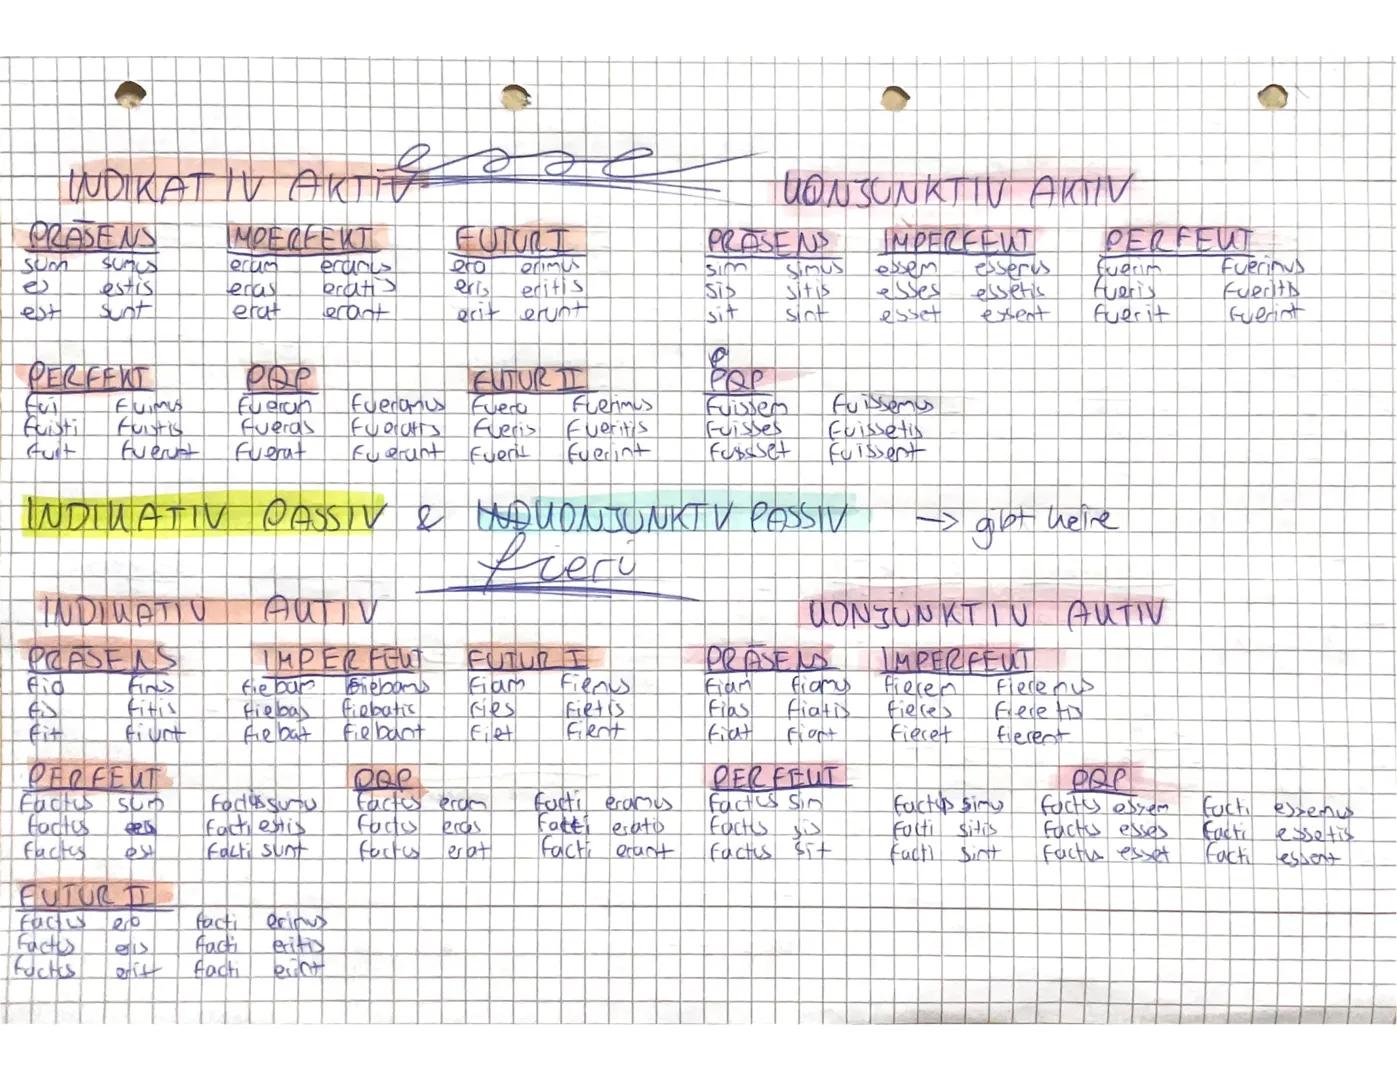 esse
INDIKATIV AKTIV KONJUNKTIV AKTIV
PRÄSENS IMPERFEKT FUTUR I PRÄSENS IMPERFEKT PERFEKT
sum sumus eram eramus ero erimus sim simus essem essemus fuerim fuerimus
es estis eras eratis eris eritis sis sitis esses essetis fueris fueritis
est sunt erat erant erit erunt sit sint esset essent fuerit fuerint
PERFEKT PQP FUTUR II PQP
fui fuimus fueram fueramus fuero fuerimus fuissem fuissemus
fuisti fuistis fueras fueratis fueris fueritis fuisses fuissetis
fuit fuerunt fuerat fuerant fuerit fuerint fuisset fuissent
INDIKATIV PASSIV & KONJUNKTIV PASSIV → gibt keine
fieri
INDIKATIV AKTIV KONJUNKTIV AKTIV
PRÄSENS IMPERFEKT FUTUR I PRÄSENS IMPERFEKT
fio fimus fiebam fiebamus fiam fiemus fiam fiamus fierem fieremus
fis fitis fiebas fiebatis fies fietis fias fiatis fieres fieretis
fit fiunt fiebat fiebant fiet fient fiat fiant fieret fierent
PERFEKT PQP PERFEKT PQP
factus sum facti sumus factus eram facti eramus factus sim facti simus factus essem facti essemus
factus es facti estis factus eras facti eratis factus sis facti sitis factus esses facti essetis
factus est facti sunt factus erat facti erant factus sit facti sint factus esset facti essent
FUTUR II
factus ero facti erimus
factus eris facti eritis
factus erit facti erint